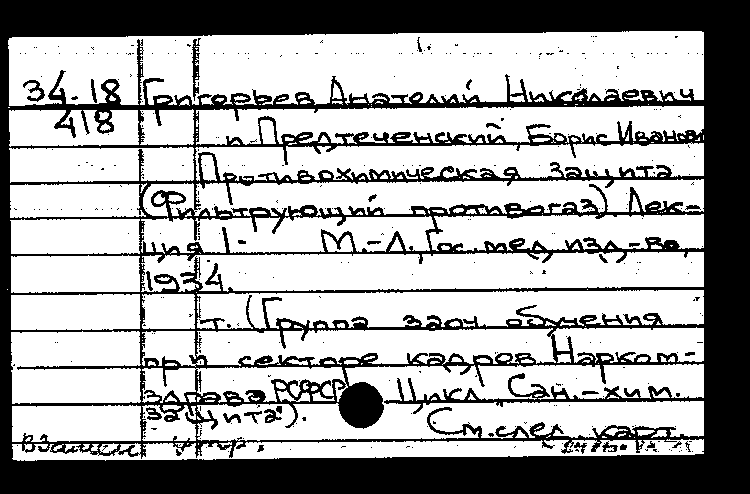 34.18 Григорьев, Анатолий Николаевич
418 и Предтеченский, Борис Иванови
Противохимическая защита
(Фильтрующий противогаз). Лек-
ция 1- М.-Л., Гос. мед. изд-во,
1934.
т. (Группа заоч. обучения
при секторе кадров Нарком-
здрава РСФСР Цикл „Сан.-хим.
защита").
См. след. карт.
Взамен утр.